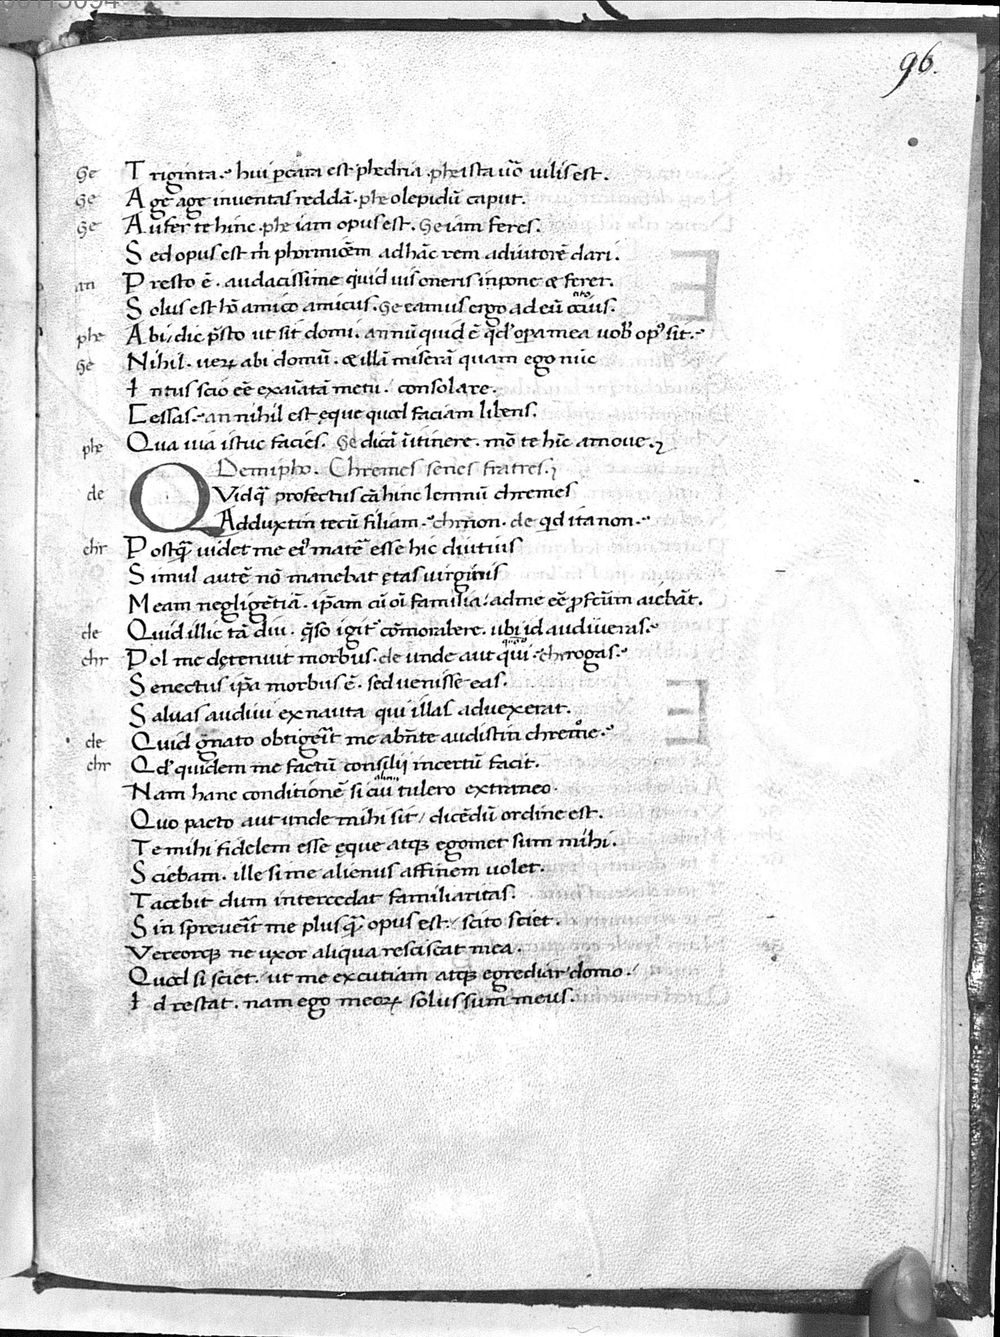 96.
Ge Triginta. hui pcara est phedria. phe ista uo uilis est.
Ge Age age inuentas reddā. phe o lepidū caput.
Ge Aufer te hinc. phe iam opus est. Ge iam feres.
Sed opus est m phormionem ad hāc rem adiutorē dari.
an Presto ē. audacissime quid uis oneris inpone & feret.
Solus est hō amico amicus. Ge eamus ergo ad eū ocius.
phe Abi, dic psto ut sit domi. an nūquid ē qd opa mea uob op sit.
Ge Nihil. uerꝝ abi domū. & illā miserā quam ego nūc
Intus scio eē exaīatā metu. consolare.
Cessas. an nihil est ęque quod faciam libens.
phe Qua uia istuc facies. Ge dicā ī itinere. mō te hīc amoue.
Demipho. Chremes senes fratres.
de Quid qͣ profectus cā hinc lemnū chremes
Adduxtin tecū filiam. chr non. de qd ita non.
chr Postqͣ uidet me ei matē esse hic diutius
Simul autē nō manebat ętas uirginis
Meam negligētiā. ipam cū oi familia ad me eē pfctam aiebāt.
de Quid illic tā diu. qso igit cōmorabere. ubi id audiueras.
chr Pol me detenuit morbus. de unde aut qui. chr rogas.
Senectus ipa morbus ē. sed uenisse eas.
Saluas audiui ex nauta qui illas aduexerat.
de Quid gnato obtigerit me absnte audistin chreme.
chr Qd quidem me factū consilij incertū facit.
Nam hanc conditionē si cui tulero extraneo.
Quo pacto aut unde mihi sit, dicēdū ordine est.
Te mihi fidelem esse ęque atqꝫ egomet sum mihi.
Sciebam. ille si me alienus affinem uolet.
Tacebit dum intercedat familiaritas.
Sin spreuerit me plus qͣ opus est. scito sciet.
Vereorqꝫ ne uxor aliqua resciscat mea.
Quod si sciet. ut me excutiam atqꝫ egrediar domo.
Id restat. nam ego meorꝝ solus sum meus.